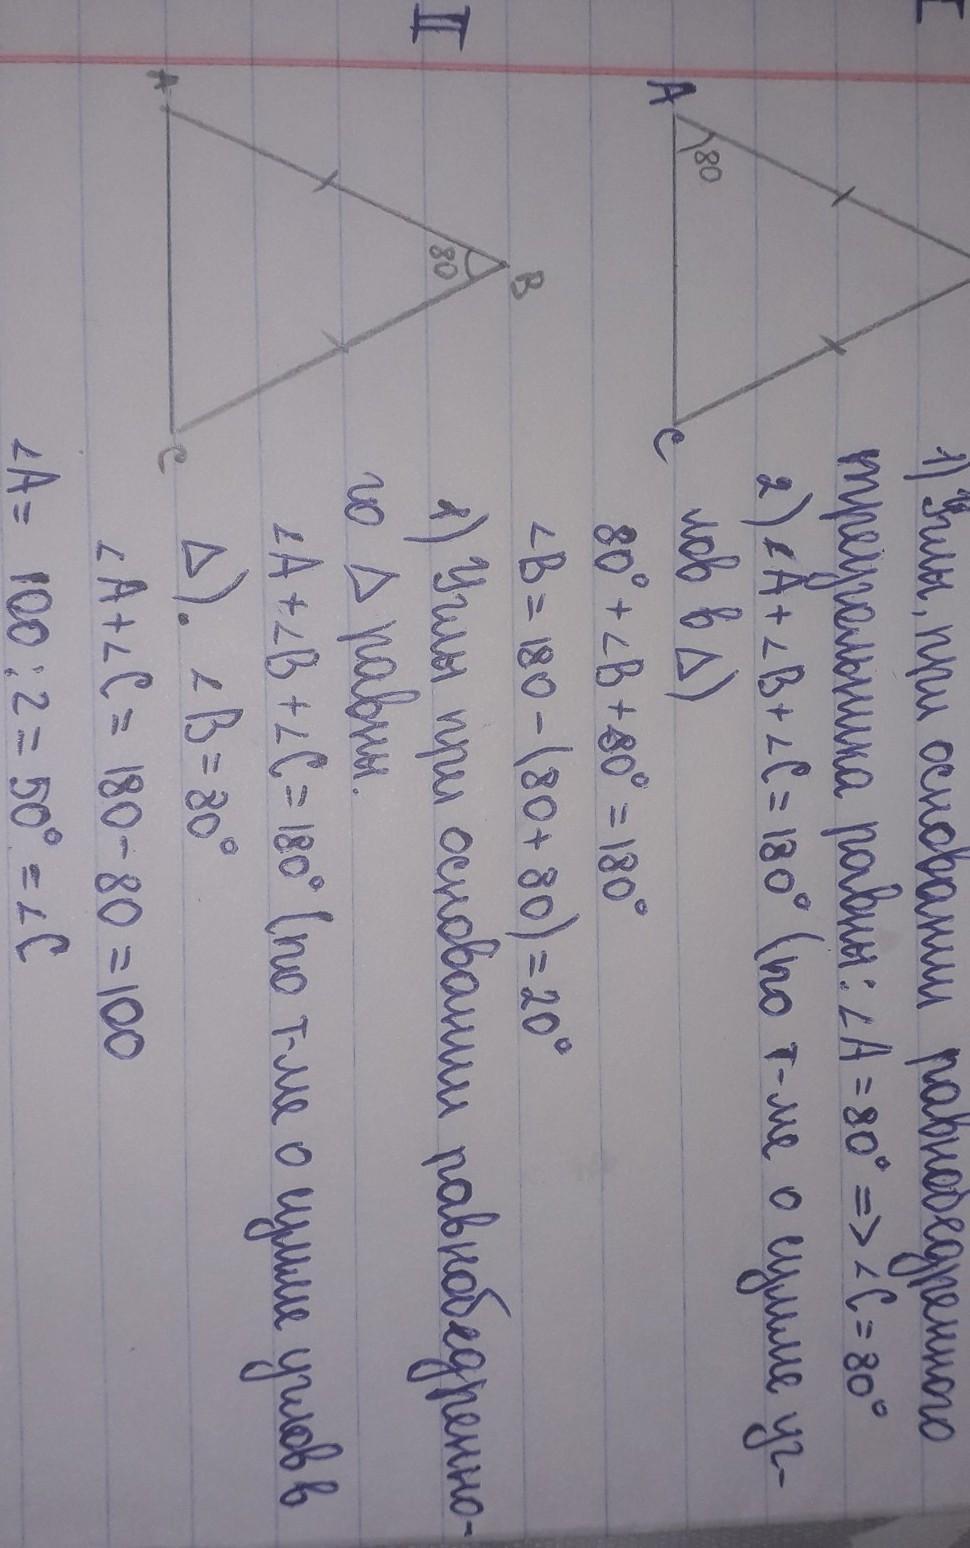 I
A
80
C
1) Углы, при основании равнобедренного
треугольника равны: ∠A = 80° => ∠C = 80°
2) ∠A + ∠B + ∠C = 180° (по т-ме о сумме уг-
лов в Δ)
80° + ∠B + 80° = 180°
∠B = 180 - (80 + 80) = 20°
II
A
B
80
C
1) Углы при основании равнобедренно-
го Δ равны.
∠A + ∠B + ∠C = 180° (по т-ме о сумме углов в
Δ). ∠B = 80°
∠A + ∠C = 180 - 80 = 100
∠A = 100 : 2 = 50° = ∠C